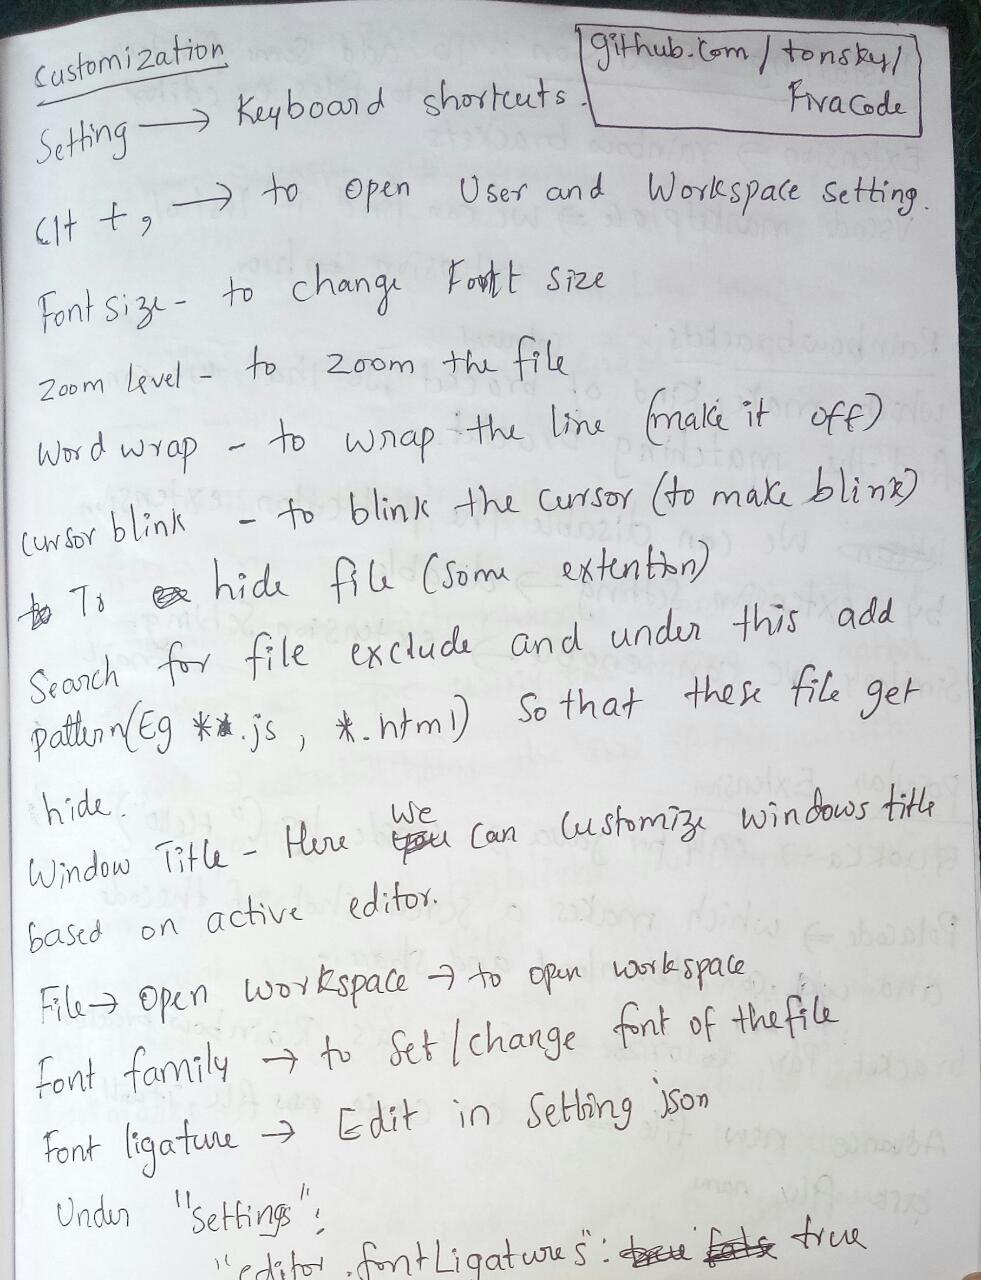 Customization
github.com/tonsky/
FiraCode
Setting → Keyboard shortcuts.
Clt + , → to open User and Workspace setting.
Font size - to change Font size
Zoom level - to zoom the file
Word wrap - to wrap the line (make it off)
Cursor blink - to blink the cursor (to make blink)
To hide file (some extention)
Search for file exclude and under this add
pattern(Eg **.js, *.html) so that these file get
hide.
Window Title - Here we can customize windows title
based on active editor.
File → Open workspace → to open workspace
Font family → to set/change font of the file
Font ligature → Edit in setting json
Under "settings":
"editor.fontLigatures": true